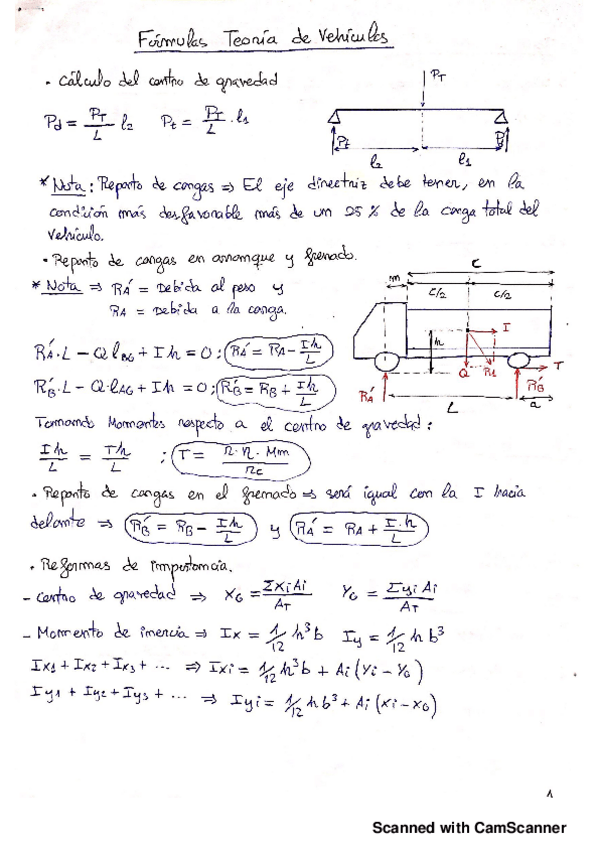 Fórmulas Teoría de Vehículos
· Cálculo del centro de gravedad
Pd = PT/L l2   Pt = PT/L · l1
PT
Pt
l2   l1
* Nota: Reparto de cargas ⇒ El eje directriz debe tener, en la
condición más desfavorable más de un 25 % de la carga total del
vehículo.
· Reparto de cargas en arranque y frenado.
* Nota ⇒ RA' = Debida al peso y
RA = Debida a la carga.
C
m   C/2   C/2
I
h
Q   R1   T
RA'   RB'
L   a
RA'·L - Q lBG + I h = 0 ; RA' = RA - Ih/L
RB'·L - Q·lAG + I h = 0 ; RB' = RB + Ih/L
Tomando Momentos respecto a el centro de gravedad:
Ih/L = Th/L ; T = r · η · Mm / rc
· Reparto de cargas en el frenado ⇒ será igual con la I hacia
delante ⇒ RB' = RB - Ih/L y RA' = RA + I·h/L
· Reformas de importancia.
- Centro de gravedad ⇒ XG = ΣXiAi/AT   YG = ΣyiAi/AT
- Momento de inercia ⇒ Ix = 1/12 h³b   Iy = 1/12 h b³
Ix1 + Ix2 + Ix3 + ... ⇒ Ixi = 1/12 h³b + Ai (Yi - YG)
Iy1 + Iy2 + Iy3 + ... ⇒ Iyi = 1/12 h b³ + Ai (Xi - XG)
1
Scanned with CamScanner